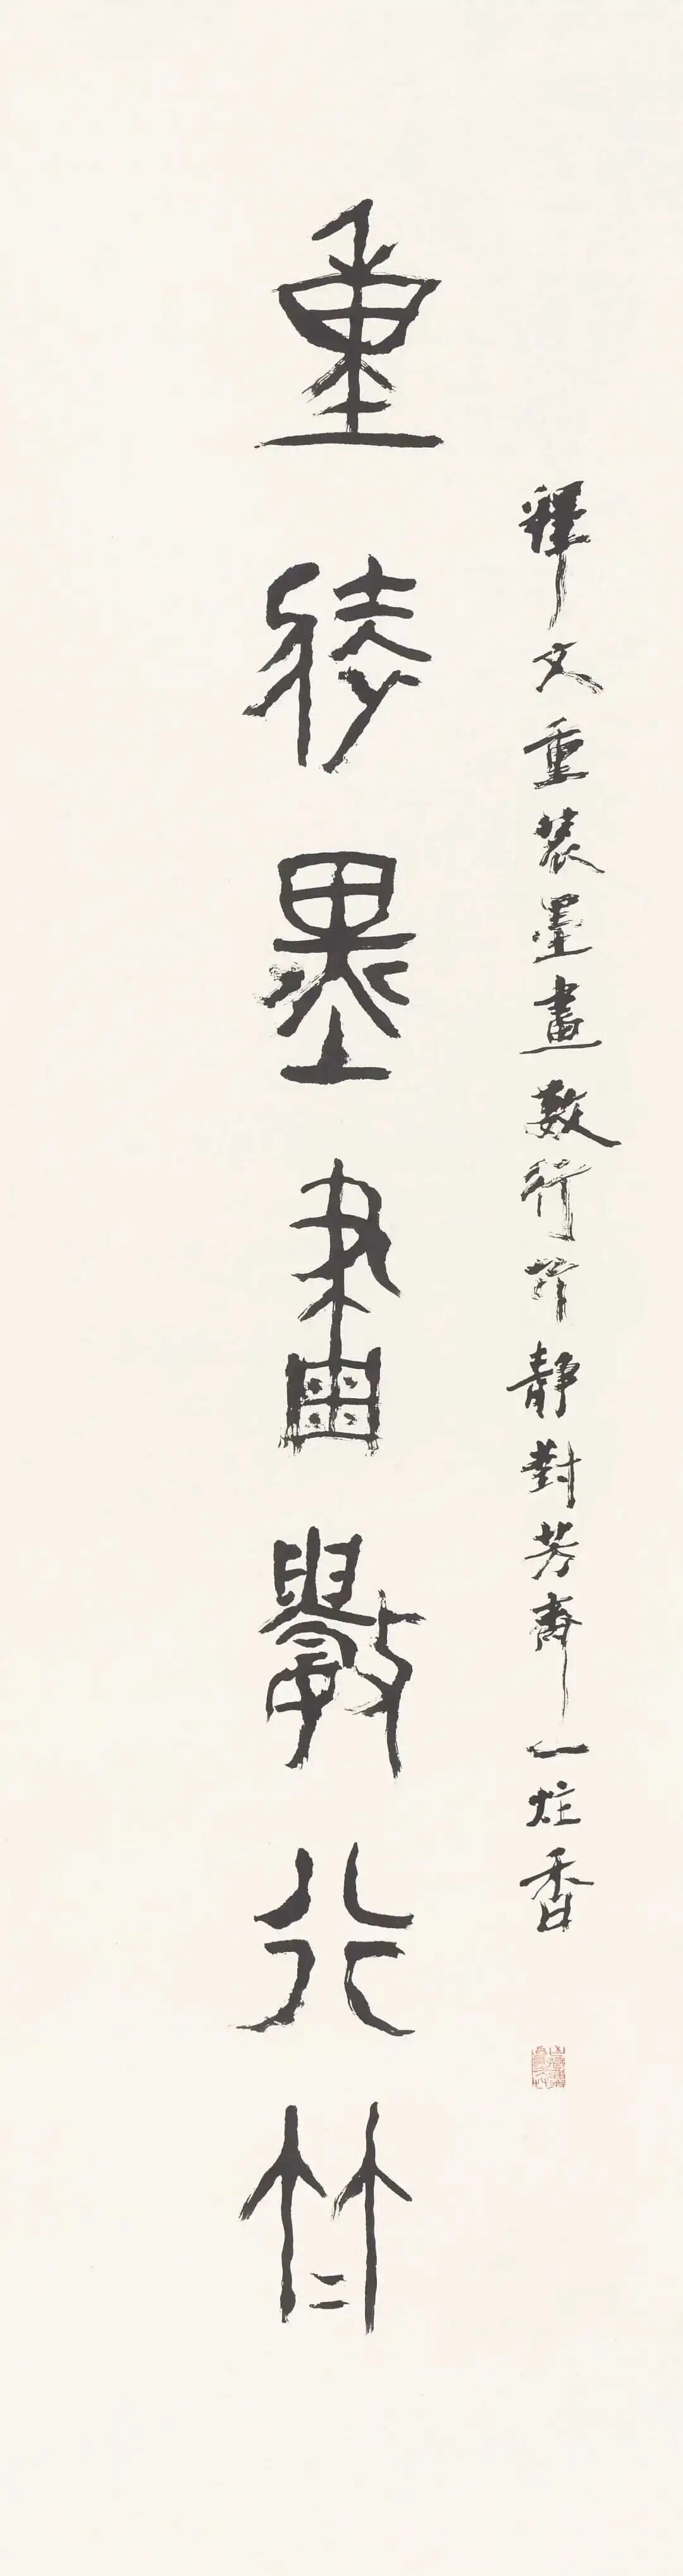 釋文重裝墨畫數行竹靜對芳齋一炷香
重裝墨畫數行竹